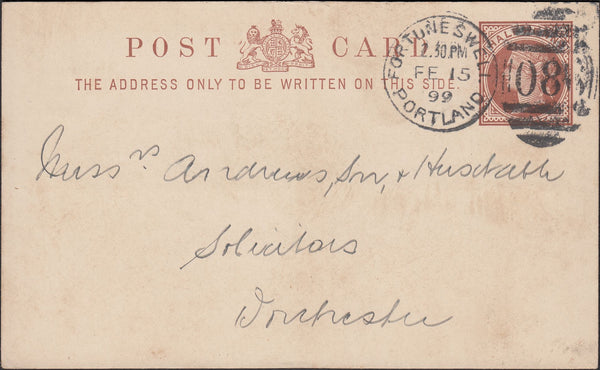 POST CARD
THE ADDRESS ONLY TO BE WRITTEN ON THIS SIDE.
FORTUNESWELL
2.30 PM
FE 15
99
PORTLAND
HALF
08
Messrs Andrews, Son, & Huxtable
Solicitors
Dorchester